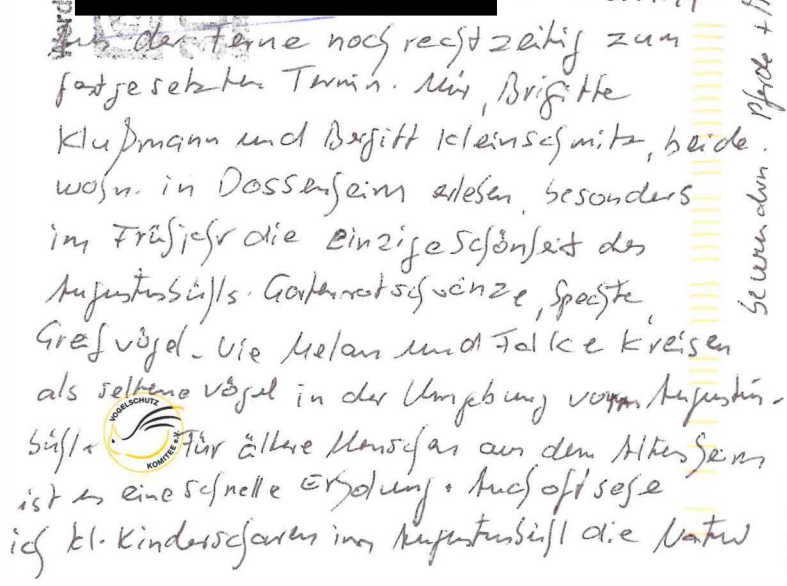 aus der Ferne noch rechtzeitig zum
festgesetzten Termin. Wir, Brigitte
Klußmann und Birgitt Kleinschmitz, beide
wohn. in Dossenheim erleben, besonders
im Frühjahr die einzige Schönheit des
Augustenbühls. Gartenrotschwänze, Spechte,
Greifvögel. Wie Milan und Falke kreisen
als seltene Vögel in der Umgebung vom Augusten-
bühl. Für ältere Menschen aus dem Altersheim
ist es eine schnelle Erholung. Auch oft sehe
ich kl. Kinderscharen im Augustenbühl die Natur
bewundern. Pferde +
VOGELSCHUTZ
KOMITEE e.V.